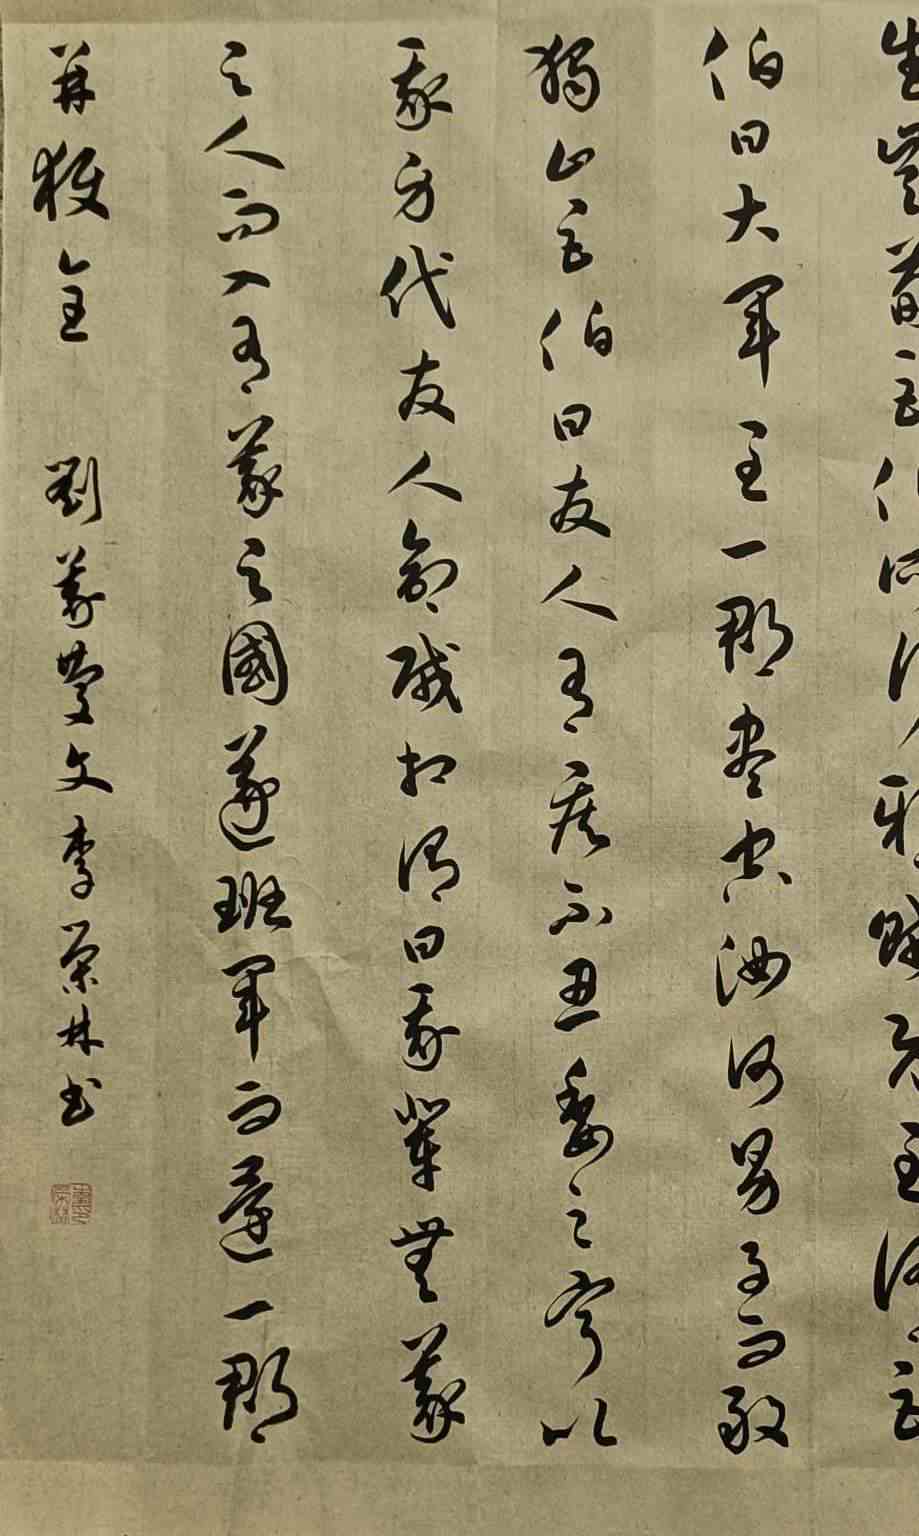 生豈荀巨伯所行邪賊既至謂巨
伯曰大軍至一郡盡空汝何男子而敢
獨止巨伯曰友人有疾不忍委之寧以
我身代友人命賊相謂曰我輩無義
之人而入有義之國遂班軍而還一郡
并獲全 劉義慶文李榮林书